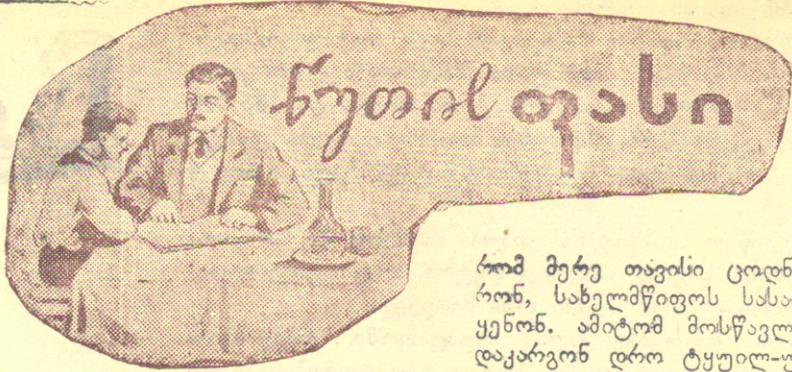 წუთის ფასი
რომ მერე თავისი ცოდნ
რონ, სახელმწიფოს სასა
ყენონ. ამიტომ მოსწავლ
დაკარგონ დრო ტყუილ-უ